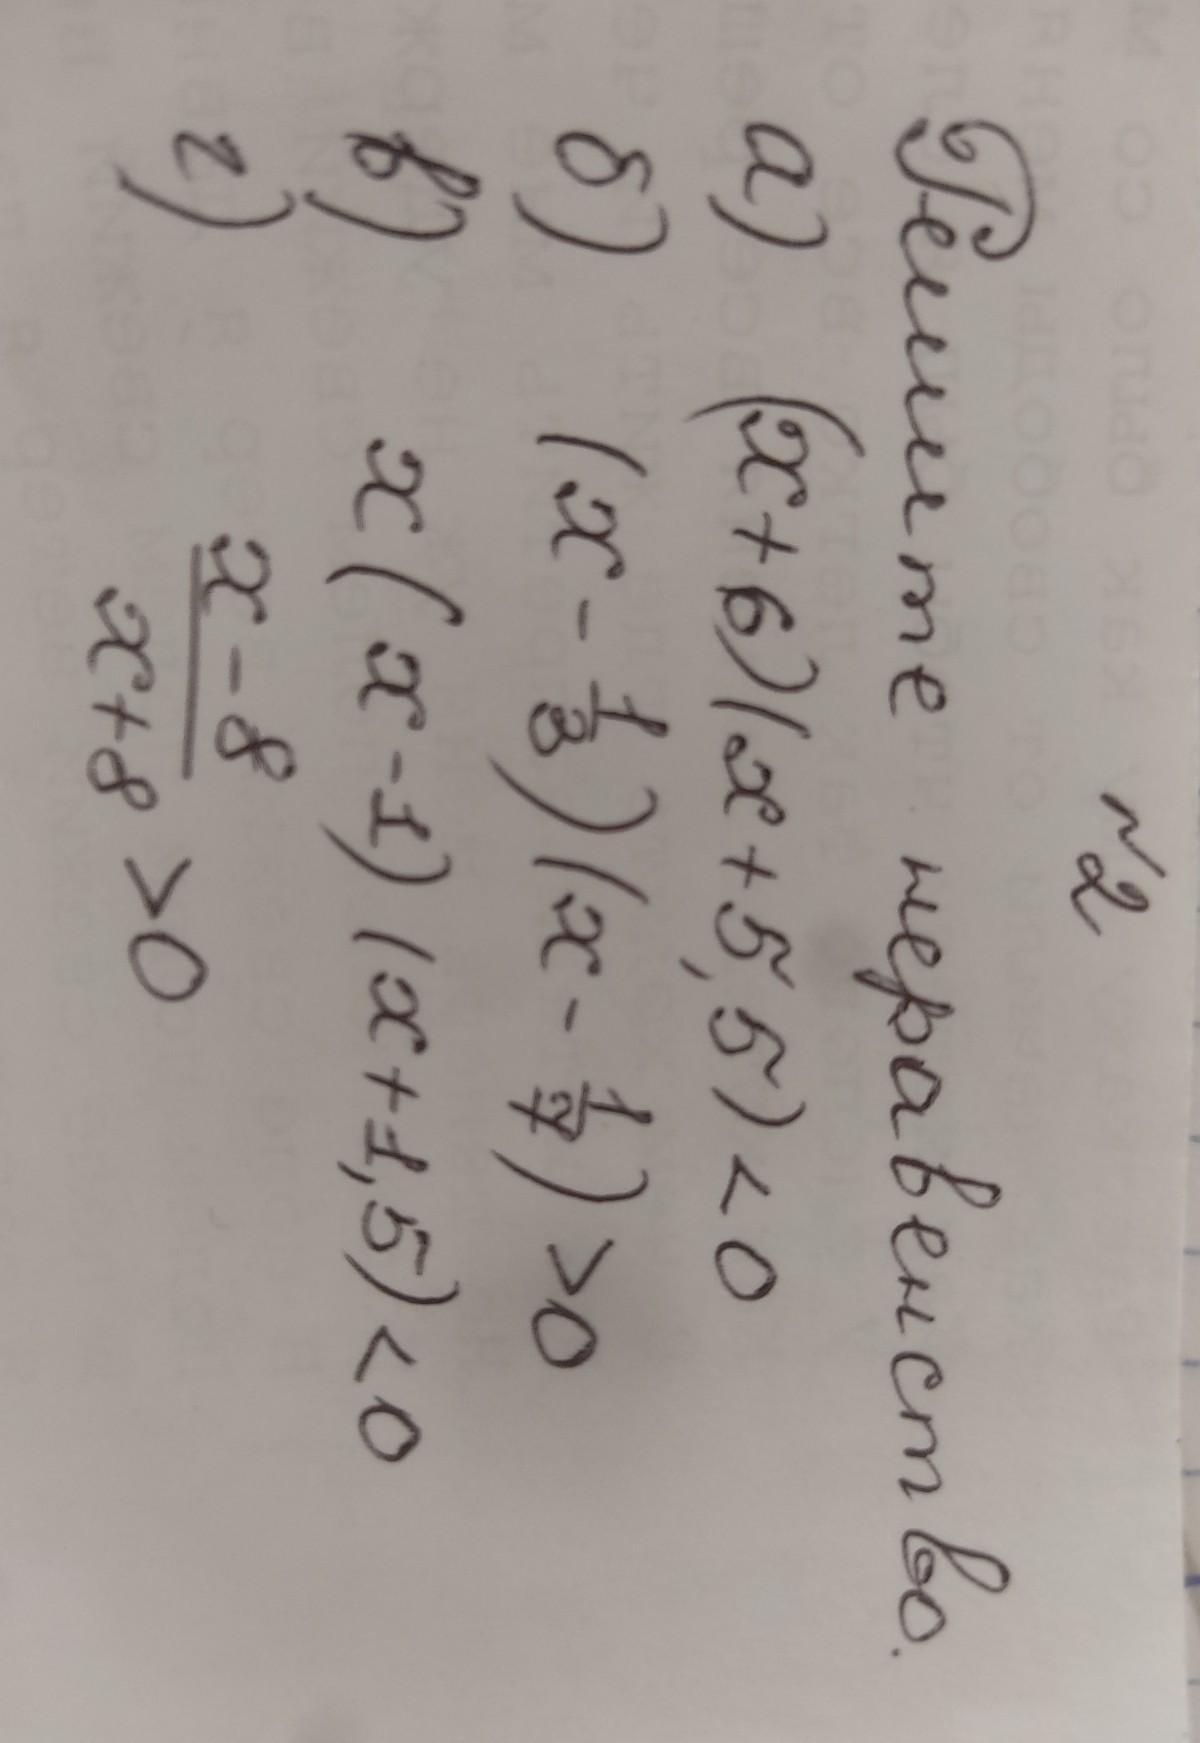 №2
Решите неравенство.
а) (x+6)(x+5,5)<0
б) (x - 1/3)(x - 1/7)>0
в) x(x-1)(x+1,5)<0
г) x-8/x+8 >0